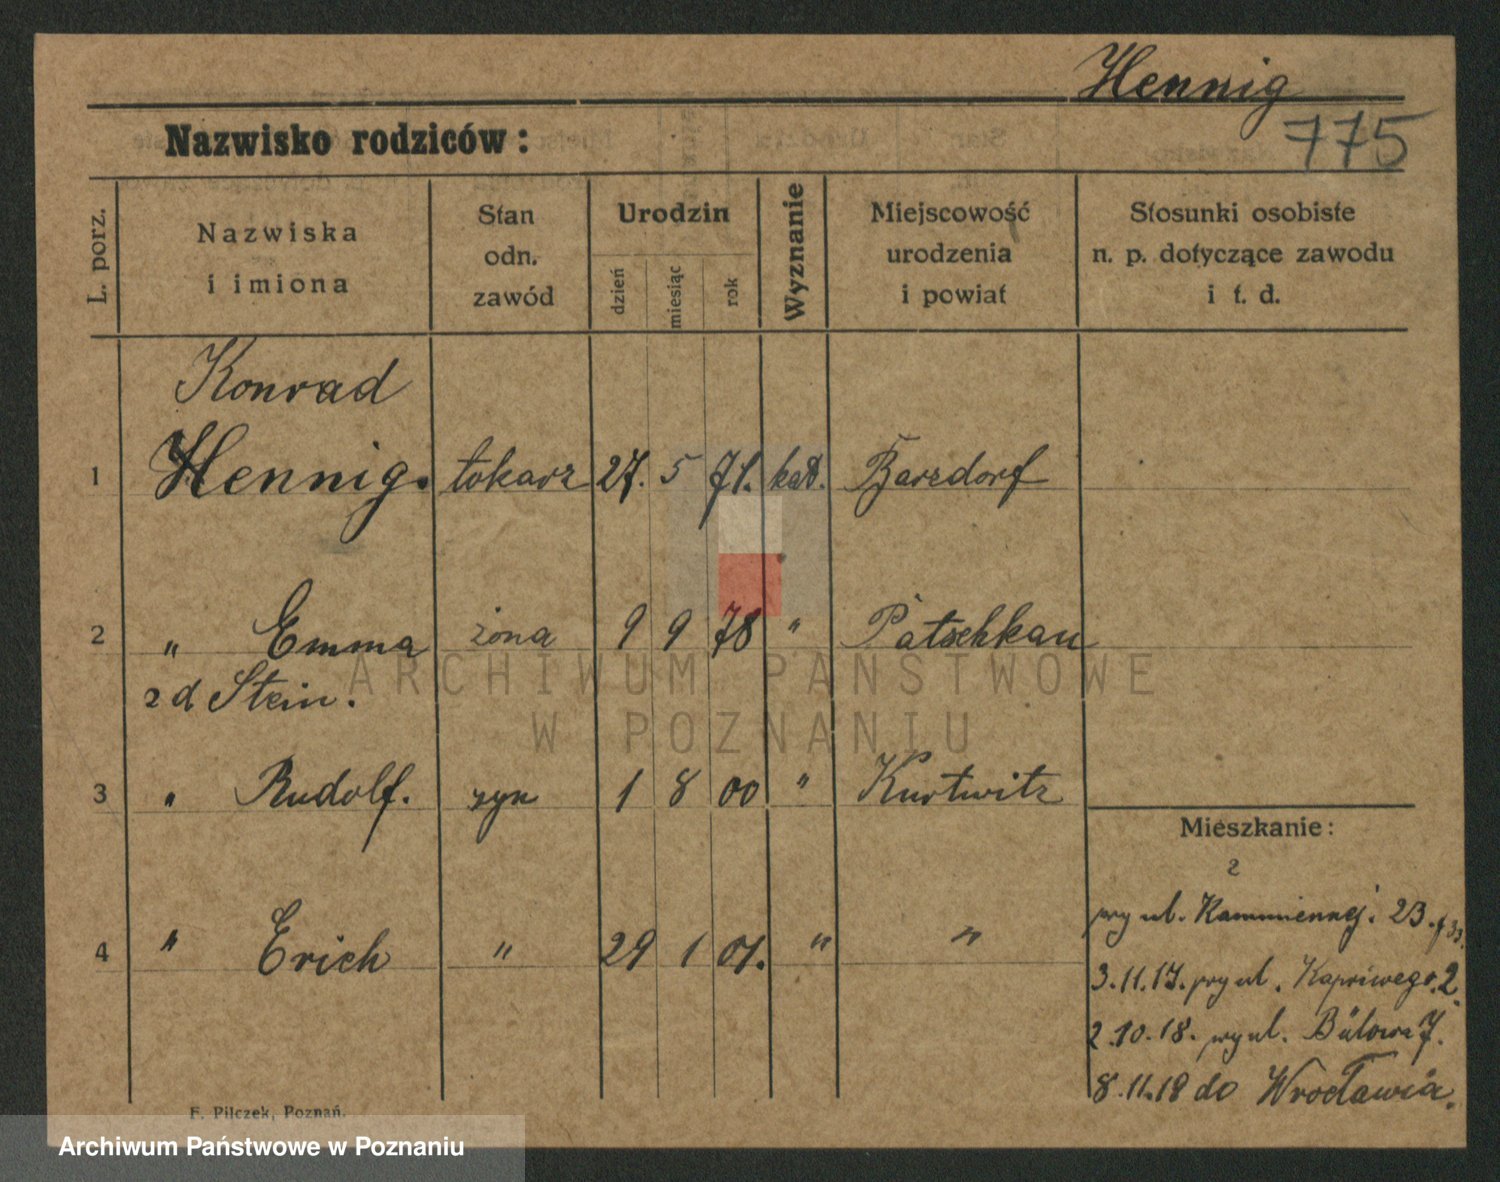 Hennig
775
Nazwisko rodziców:
L. porz.
Nazwiska
i imiona
Stan
odn.
zawód
Urodzin
dzień
miesiąc
rok
Wyznanie
Miejscowość
urodzenia
i powiat
Stosunki osobiste
n. p. dotyczące zawodu
i t. d.
Konrad
1 Hennig. tokarz 27. 5 71. kat. Barzdorf
2 " Emma żona 9 9 78 " Patschkau
z d Stein.
3 " Rudolf. syn 1 8 00 " Kurtwitz
Mieszkanie:
2
przy ul. Kammiennej. 23.
4 " Erich " 29 1 01. " "
3.11.17. przy ul. Kapriwego. 2.
2.10.18. przy ul. Bülowa 7.
8.11.18 do Wrocławia.
F. Pilczek, Poznań.
ARCHIWUM PAŃSTWOWE
W POZNANIU
Archiwum Państwowe w Poznaniu